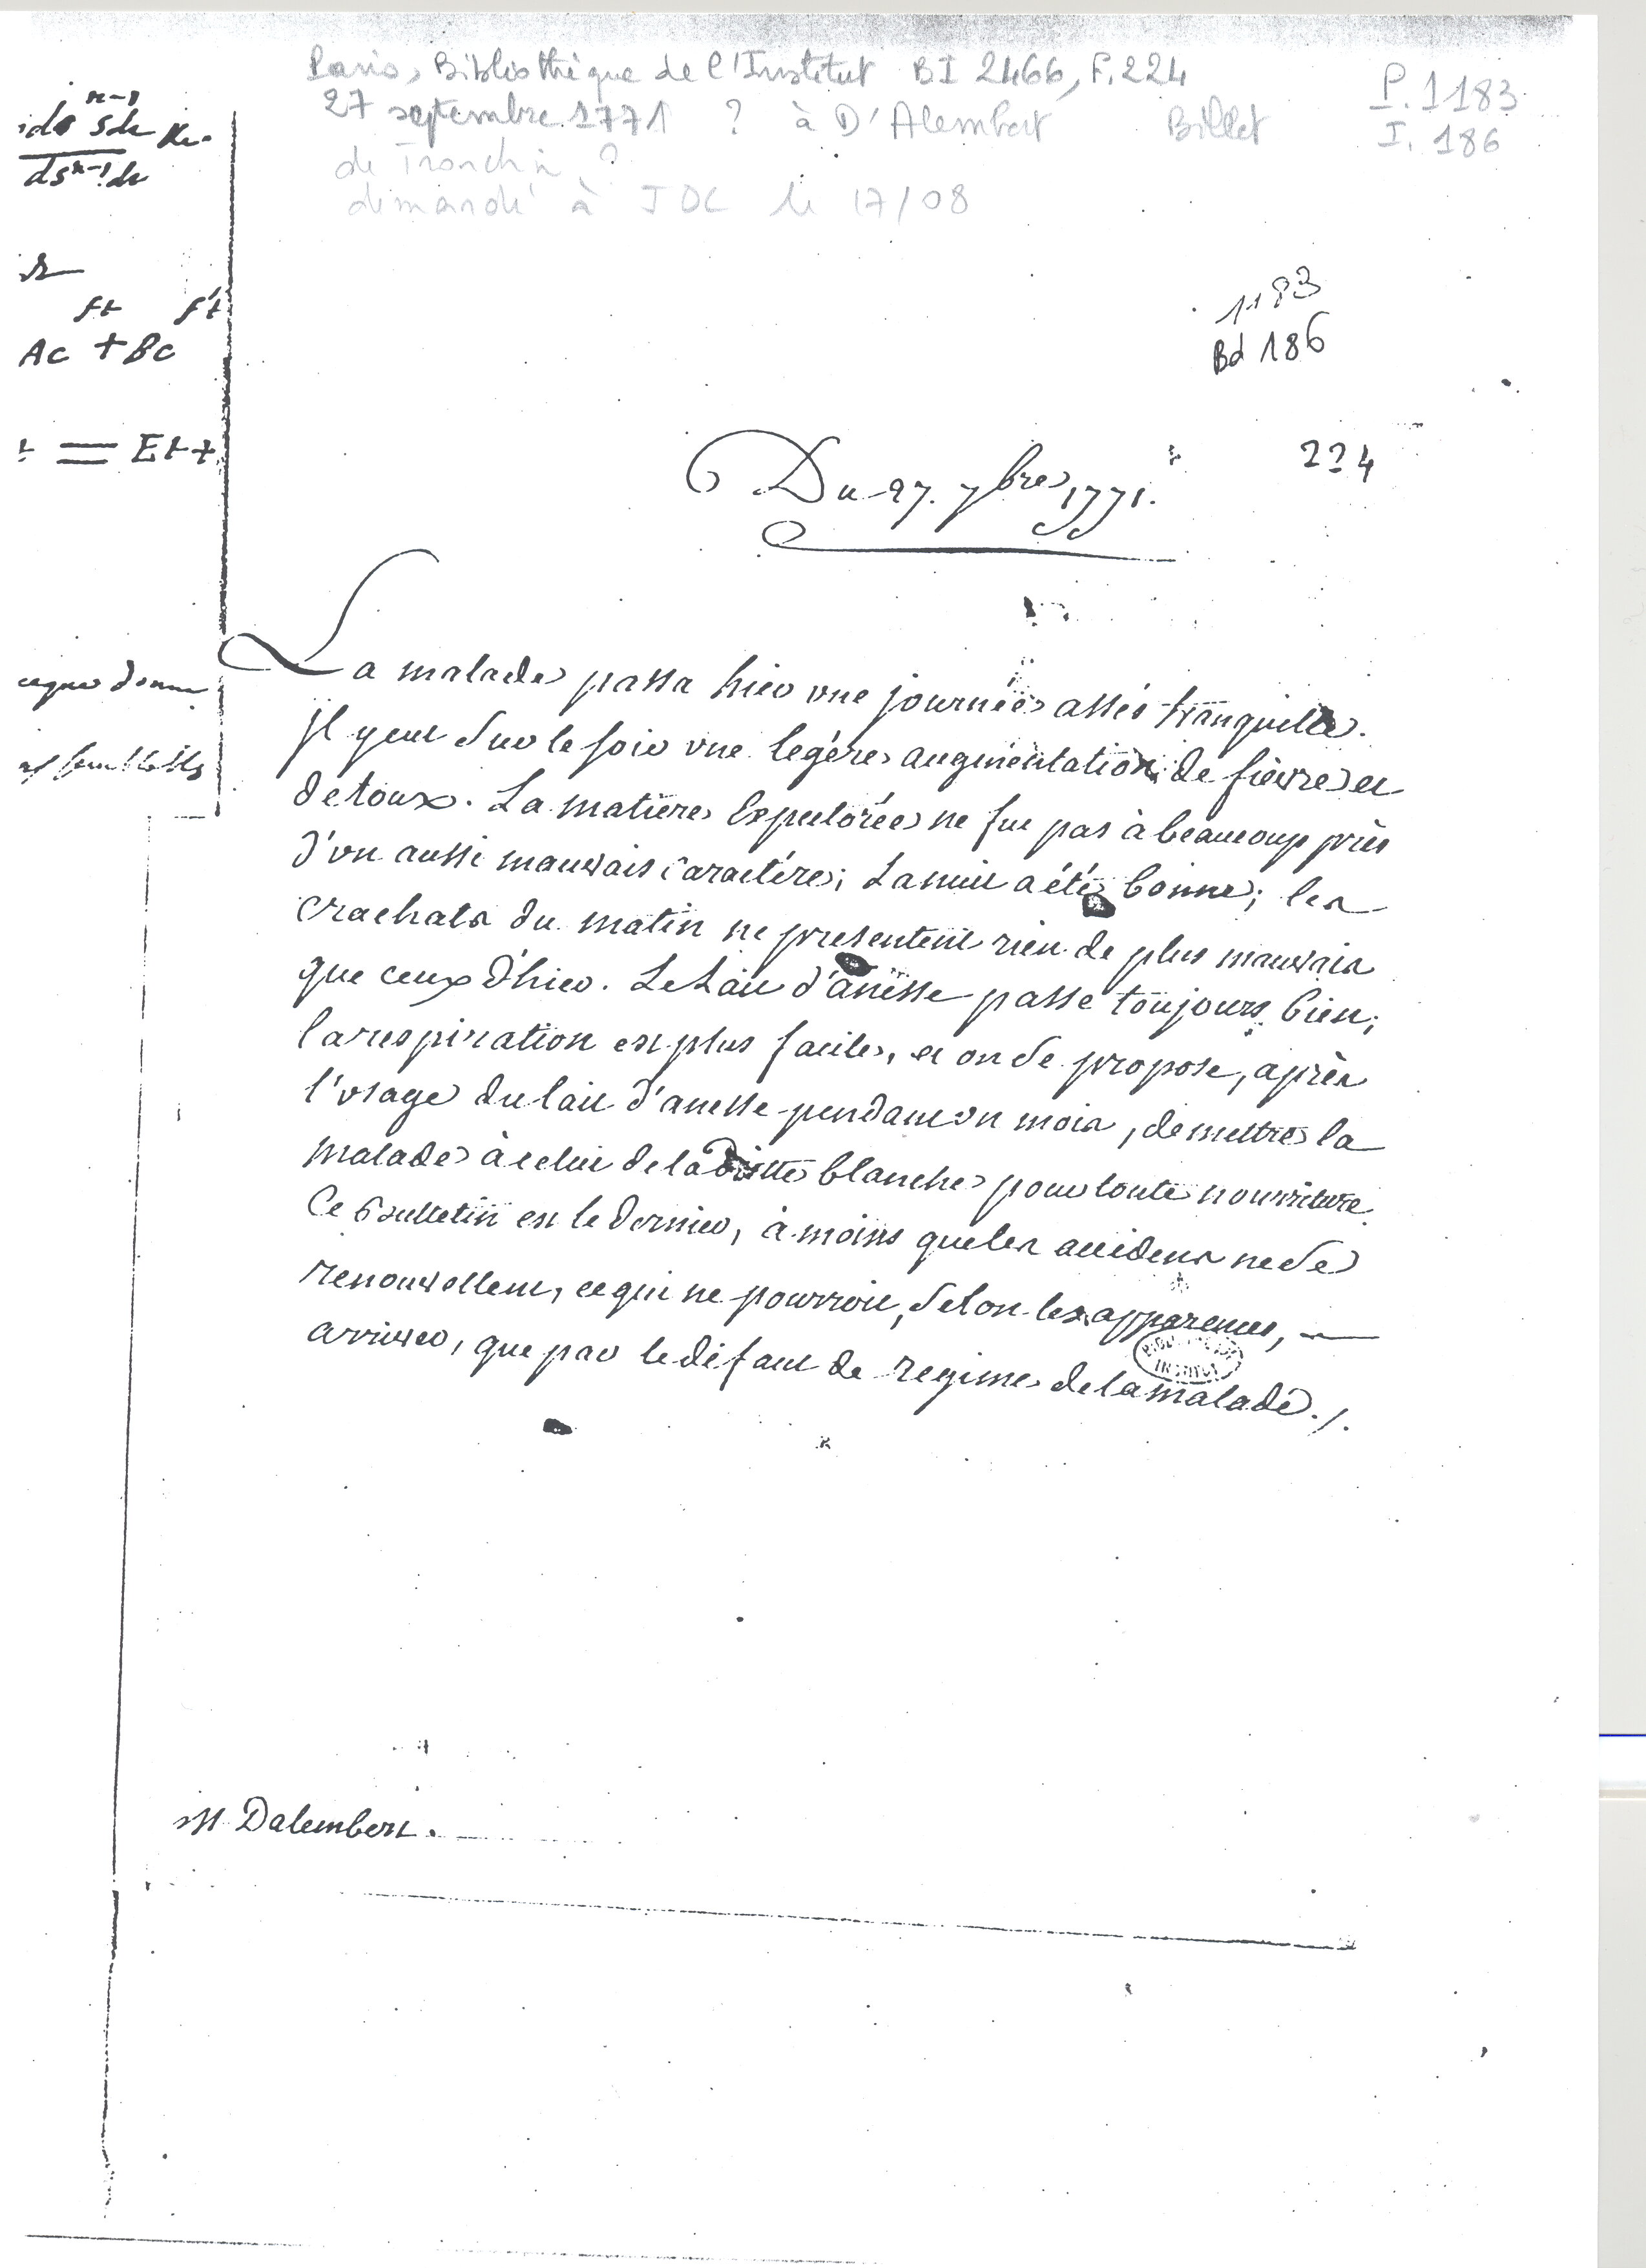 Paris, Bibliothèque de l'Institut BI 2466, F. 224
P. 1183
27 septembre 1771 ? à D'Alembert Billet
I. 186
de Tronchin ?
demandé à JDC le 17/08
n-1
ds
dsⁿ⁻¹
ft f't
Ac + Bc
t = Et +
ce que donne
1183
Bd 186
224
Du 27. 7bre 1771.
La malade passa hier une journée assés tranquille.
Il y eut sur le soir une legére augmentation de fièvre et
de toux. La matiere Expectorée ne fut pas à beaucoup près
d'un aussi mauvais caractére; La nuit a été bonne; les
crachats du matin ne presentent rien de plus mauvais
que ceux d'hier. Le Lait d'anesse passe toujours bien;
la respiration est plus facile, et on se propose, après
l'usage du lait d'anesse pendant un mois, de mettre la
malade à celui de la diette blanche pour toute nourriture.
Ce Bulletin est le dernier, à moins que les accidens ne se
renouvellent, ce qui ne pourroit, selon les apparences,
arriver, que par le défaut de regime de la malade./.
BIBLIOTHEQUE
INSTITUT
M Dalembert.